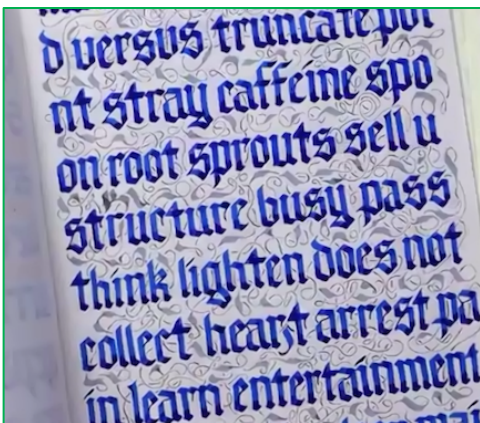 d versus truncate poi
nt stray caffeine spo
on root sprouts sell u
structure busy pass
think lighten does not
collect heart arrest pa
in learn entertainment